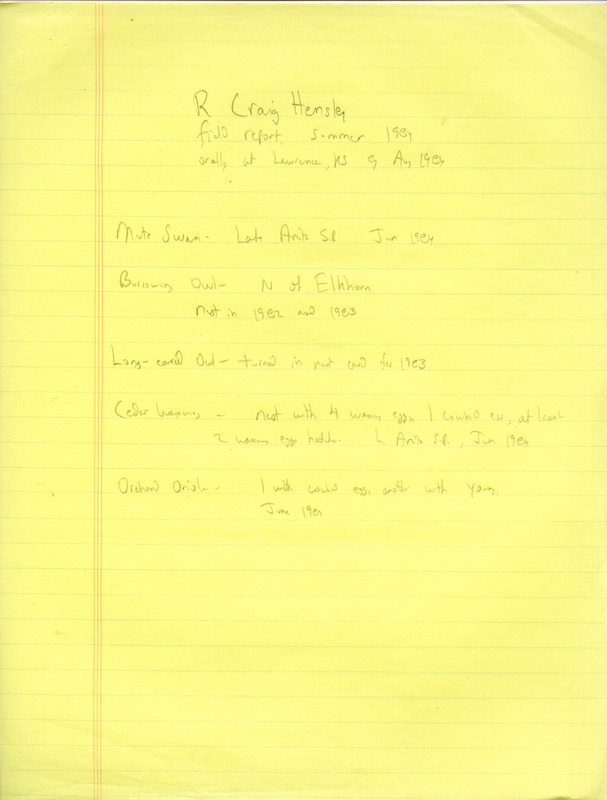 R Craig Hensley
field report, summer 1984
orally at Lawrence, KS 9 Aug 1984
Mute Swan - Lake Anita S.P. Jun 1984
Burrowing Owl - N of Elkhorn
nest in 1982 and 1983
Long-eared Owl - turned in nest card for 1983
Cedar Waxwing - nest with 4 waxwing eggs 1 cowbird egg, at least
2 waxwing eggs hatch. L Anita S.P., Jun 1984
Orchard Oriole - 1 with cowbird egg, another with young,
June 1984